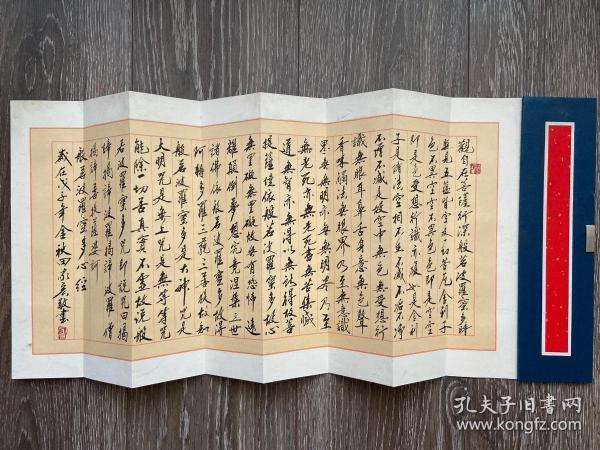 觀自在菩薩行深般若波羅蜜多時
照見五蘊皆空度一切苦厄舍利子
色不異空空不異色色即是空空
即是色受想行識亦復如是舍利
子是諸法空相不生不滅不垢不淨
不增不減是故空中無色無受想行
識無眼耳鼻舌身意無色聲
香味觸法無眼界乃至無意識
界無無明亦無無明盡乃至
無老死亦無老死盡無苦集滅
道無智亦無得以無所得故菩
提薩埵依般若波羅蜜多故心
無罣礙無罣礙故無有恐怖遠
離顛倒夢想究竟涅槃三世
諸佛依般若波羅蜜多故得
阿耨多羅三藐三菩提故知
般若波羅蜜多是大神咒是
大明咒是無上咒是無等等咒
能除一切苦真實不虛故說般
若波羅蜜多咒即說咒曰揭
諦揭諦波羅揭諦波羅僧
揭諦菩提薩婆訶
般若波羅蜜多心經
歲在戊子年金秋田敬書
孔夫子旧书网
www.kongfz.com